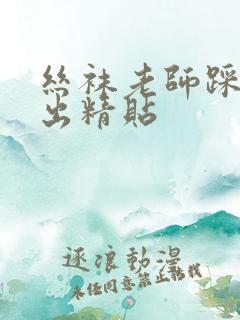 絲袜老師踩
出精貼
逐浪動漫
未任同意禁止轉載